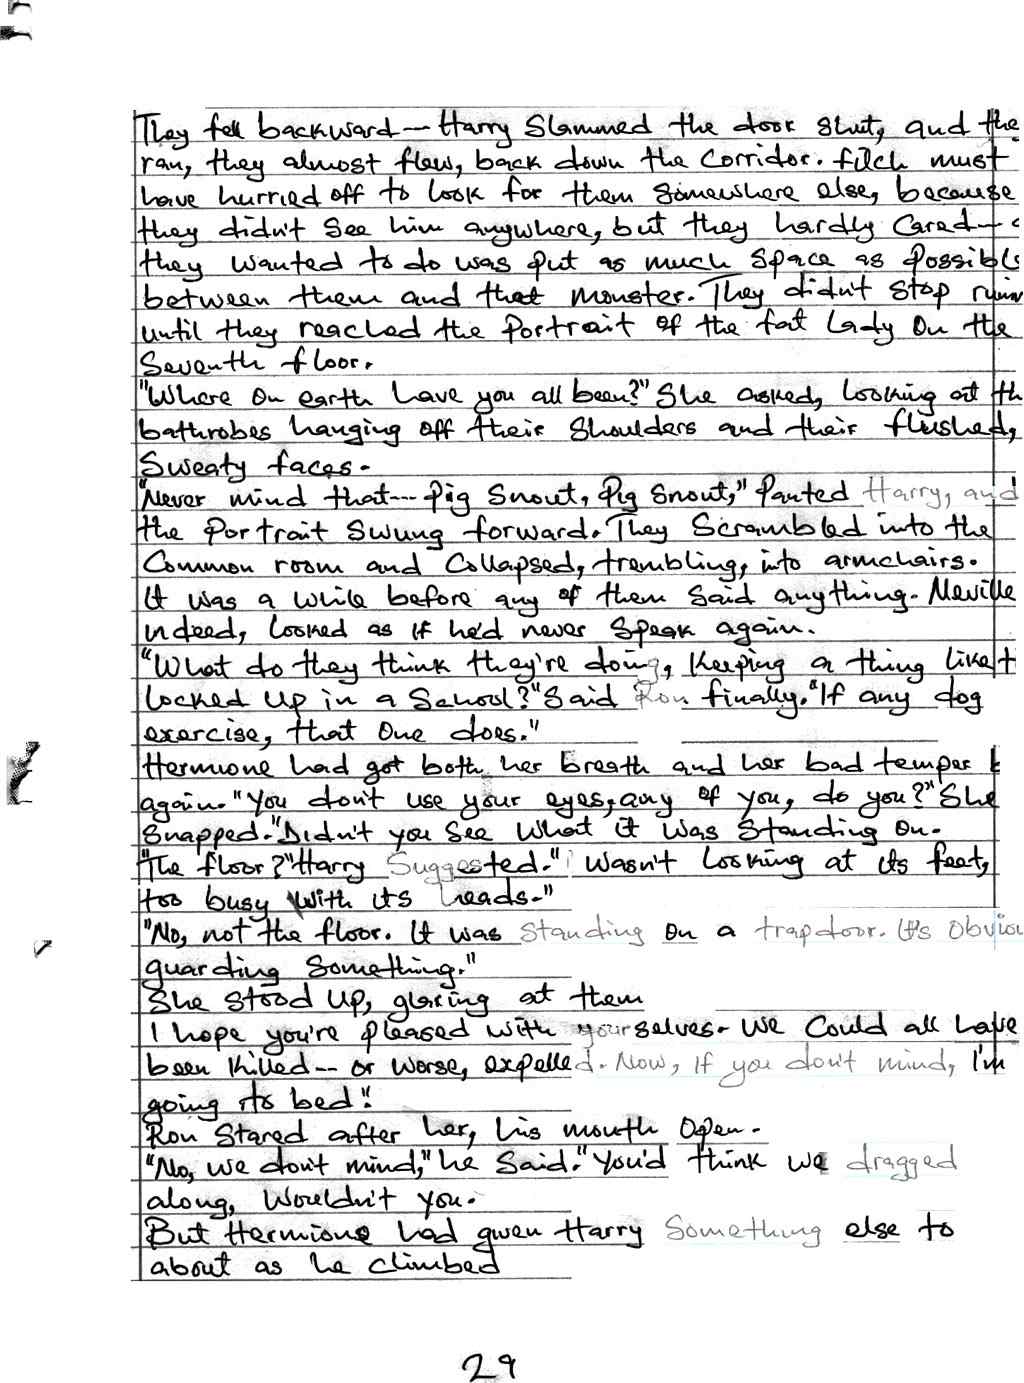 They fell backward — Harry Slammed the door Shut, and the
ran, they almost flew, back down the Corridor. filch must
have hurried off to look for them Somewhere else, because
they didn't See him anywhere, but they hardly Cared —
they wanted to do was put as much Space as Possible
between them and that monster. They didn't stop
until they reached the Portrait of the fat Lady On the
Seventh floor.
"Where On earth have you all been?" She asked, Looking at th
bathrobes hanging off their Shoulders and their flushed,
Sweaty faces.
"Never mind that -- Pig Snout, Pig Snout," Panted Harry, and
the Portrait Swung forward. They Scrambled into the
Common room and Collapsed, trembling, into armchairs.
It was a while before any of them Said anything. Neville
indeed, Looked as if he'd never Speak again.
"What do they think they're doing, Keeping a thing like t
Locked Up in a School?" Said Ron finally. "If any dog
exercise, that One does."
Hermione had got both her breath and her bad temper b
again. "You don't use your eyes, any of you, do you?" She
Snapped. "Didn't you See What it Was Standing On.
"The floor?" Harry Suggested. "I Wasn't Looking at its feet,
too busy With its heads."
"No, not the floor. It was Standing on a trapdoor. It's Obviou
guarding Something."
She Stood Up, glaring at them
I hope you're pleased with yourselves. We Could all have
been Killed -- or worse, expelled. Now, If you don't mind, I'm
going to bed".
Ron Stared after her, his mouth Open.
"No, we don't mind," he Said. "You'd think we dragged
along, Wouldn't you.
But Hermione had given Harry Something else to
about as he climbed
29